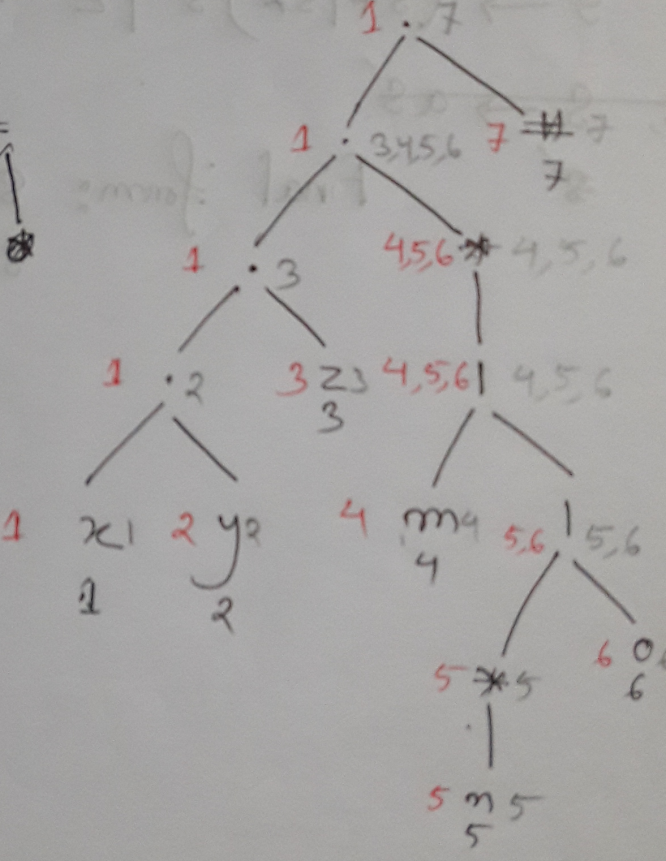 1 . 7
1 . 3,4,5,6 7 # 7
7
=
*
1 . 3 4,5,6 * 4,5,6
1 . 2 3 z 3 4,5,6 | 4,5,6
3
1 x 1 2 y 2 4 m 4 5,6 | 5,6
1 2 4
5 * 5 6 o 6
6
5 n 5
5